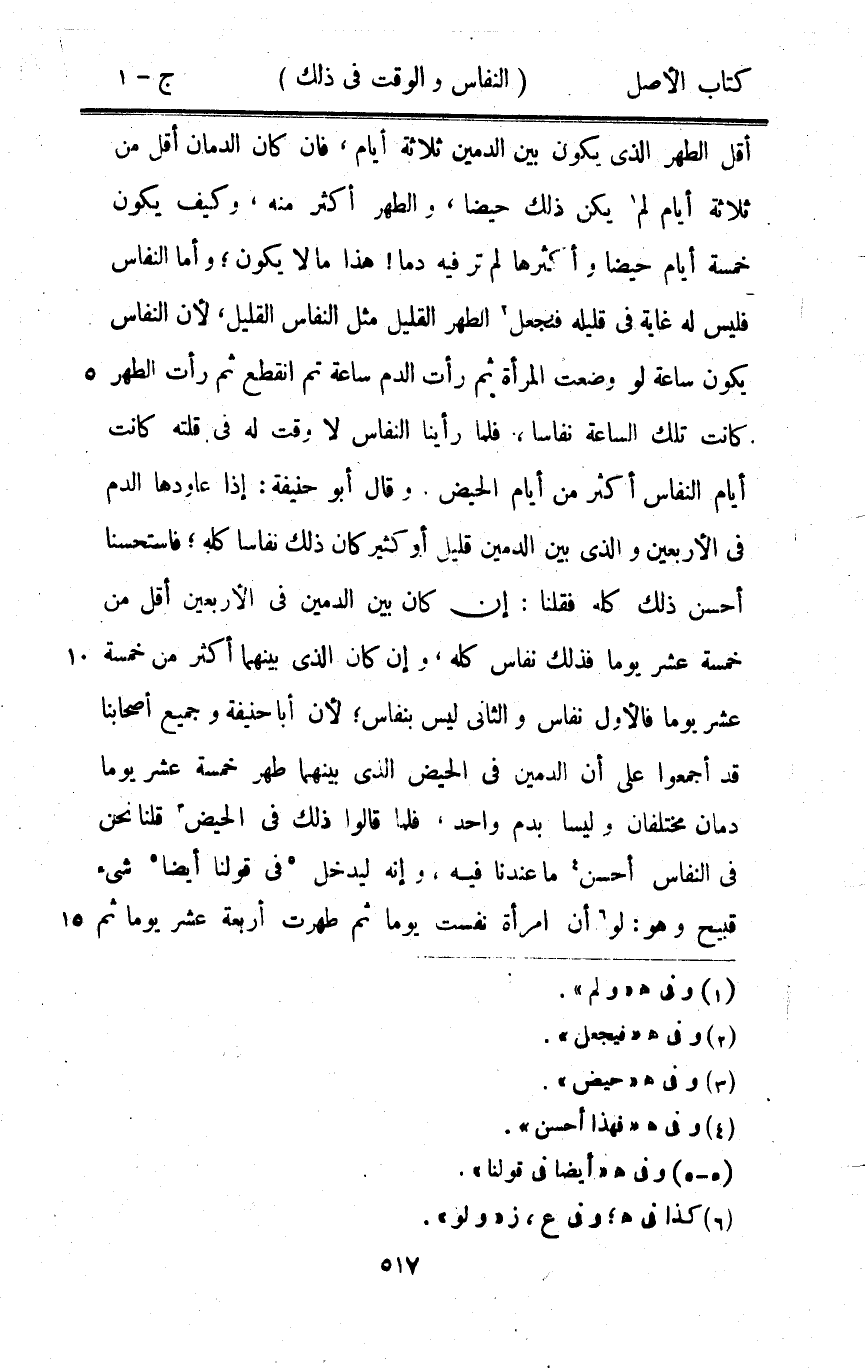 كتاب الأصل ( النفاس و الوقت فى ذلك ) ج - ١
أقل الطهر الذى يكون بين الدمين ثلاثة أيام ، فان كان الدمان أقل من
ثلاثة أيام لم١ يكن ذلك حيضا ، و الطهر أكثر منه ، وكيف يكون
خمسة أيام حيضا و أكثرها لم تر فيه دما ! هذا ما لا يكون ؛ و أما النفاس
فليس له غاية فى قليله فنجعل٢ الطهر القليل مثل النفاس القليل ، لأن النفاس
يكون ساعة لو وضعت المرأة ثم رأت الدم ساعة تم انقطع ثم رأت الطهر ٥
كانت تلك الساعة نفاسا ، فلما رأينا النفاس لا وقت له فى قلته كانت
أيام النفاس أكثر من أيام الحيض . و قال أبو حنيفة : إذا عاودها الدم
فى الأربعين و الذى بين الدمين قليل أو كثير كان ذلك نفاسا كله ؛ فاستحسنا
أحسن ذلك كله فقلنا : إن كان بين الدمين فى الأربعين أقل من
خمسة عشر يوما فذلك نفاس كله ، و إن كان الذى بينهما أكثر من خمسة ١٠
عشر يوما فالأول نفاس و الثانى ليس بنفاس ؛ لأن أبا حنيفة و جميع أصحابنا
قد أجمعوا على أن الدمين فى الحيض الذى بينهما طهر خمسة عشر يوما
دمان مختلفان و ليسا بدم واحد ، فلما قالوا ذلك فى الحيض٣ قلنا نحن
فى النفاس أحسن٤ ما عندنا فيه ، و إنه ليدخل ٥فى قولنا أيضا٥ شىء
قبيح و هو : لو٦ أن امرأة نفست يوما ثم طهرت أربعة عشر يوما ثم ١٥
(١) و فى ه « و لم » .
(٢) و فى ه « فيجعل » .
(٣) و فى ه « حيض » .
(٤) و فى ه « فهذا أحسن » .
(٥-٥) و فى ه « أيضا فى قولنا » .
(٦) كذا فى ه ؛ و فى ع ، ز « و لو » .
٥١٧